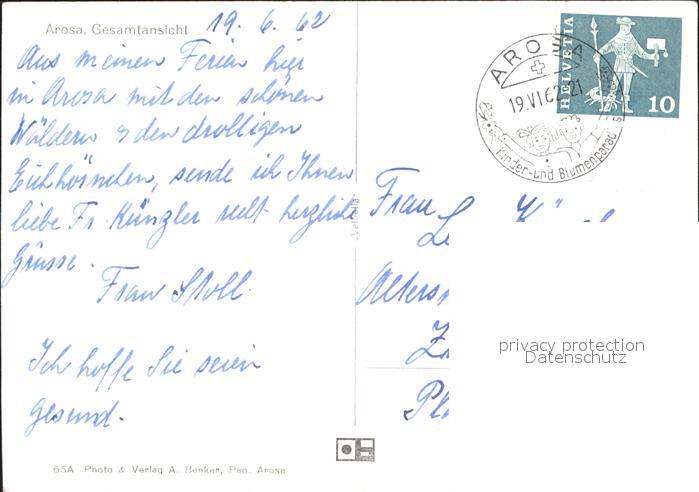 Arosa, Gesamtansicht
19. 6. 62
Aus meinen Ferien hier
in Arosa mit den schönen
Wäldern & den drolligen
Eichhörnchen, sende ich Ihnen
liebe Fr. Künzler recht herzliche
Grüsse.
Frau Stoll
Ich hoffe Sie seien
gesund.
65A Photo & Verlag A. Benker, Pap. Arosa
HELVETIA
10
AROSA
19.VI.62-21
Kinder- und Blumenparadies
Frau
Alters
privacy protection
Datenschutz